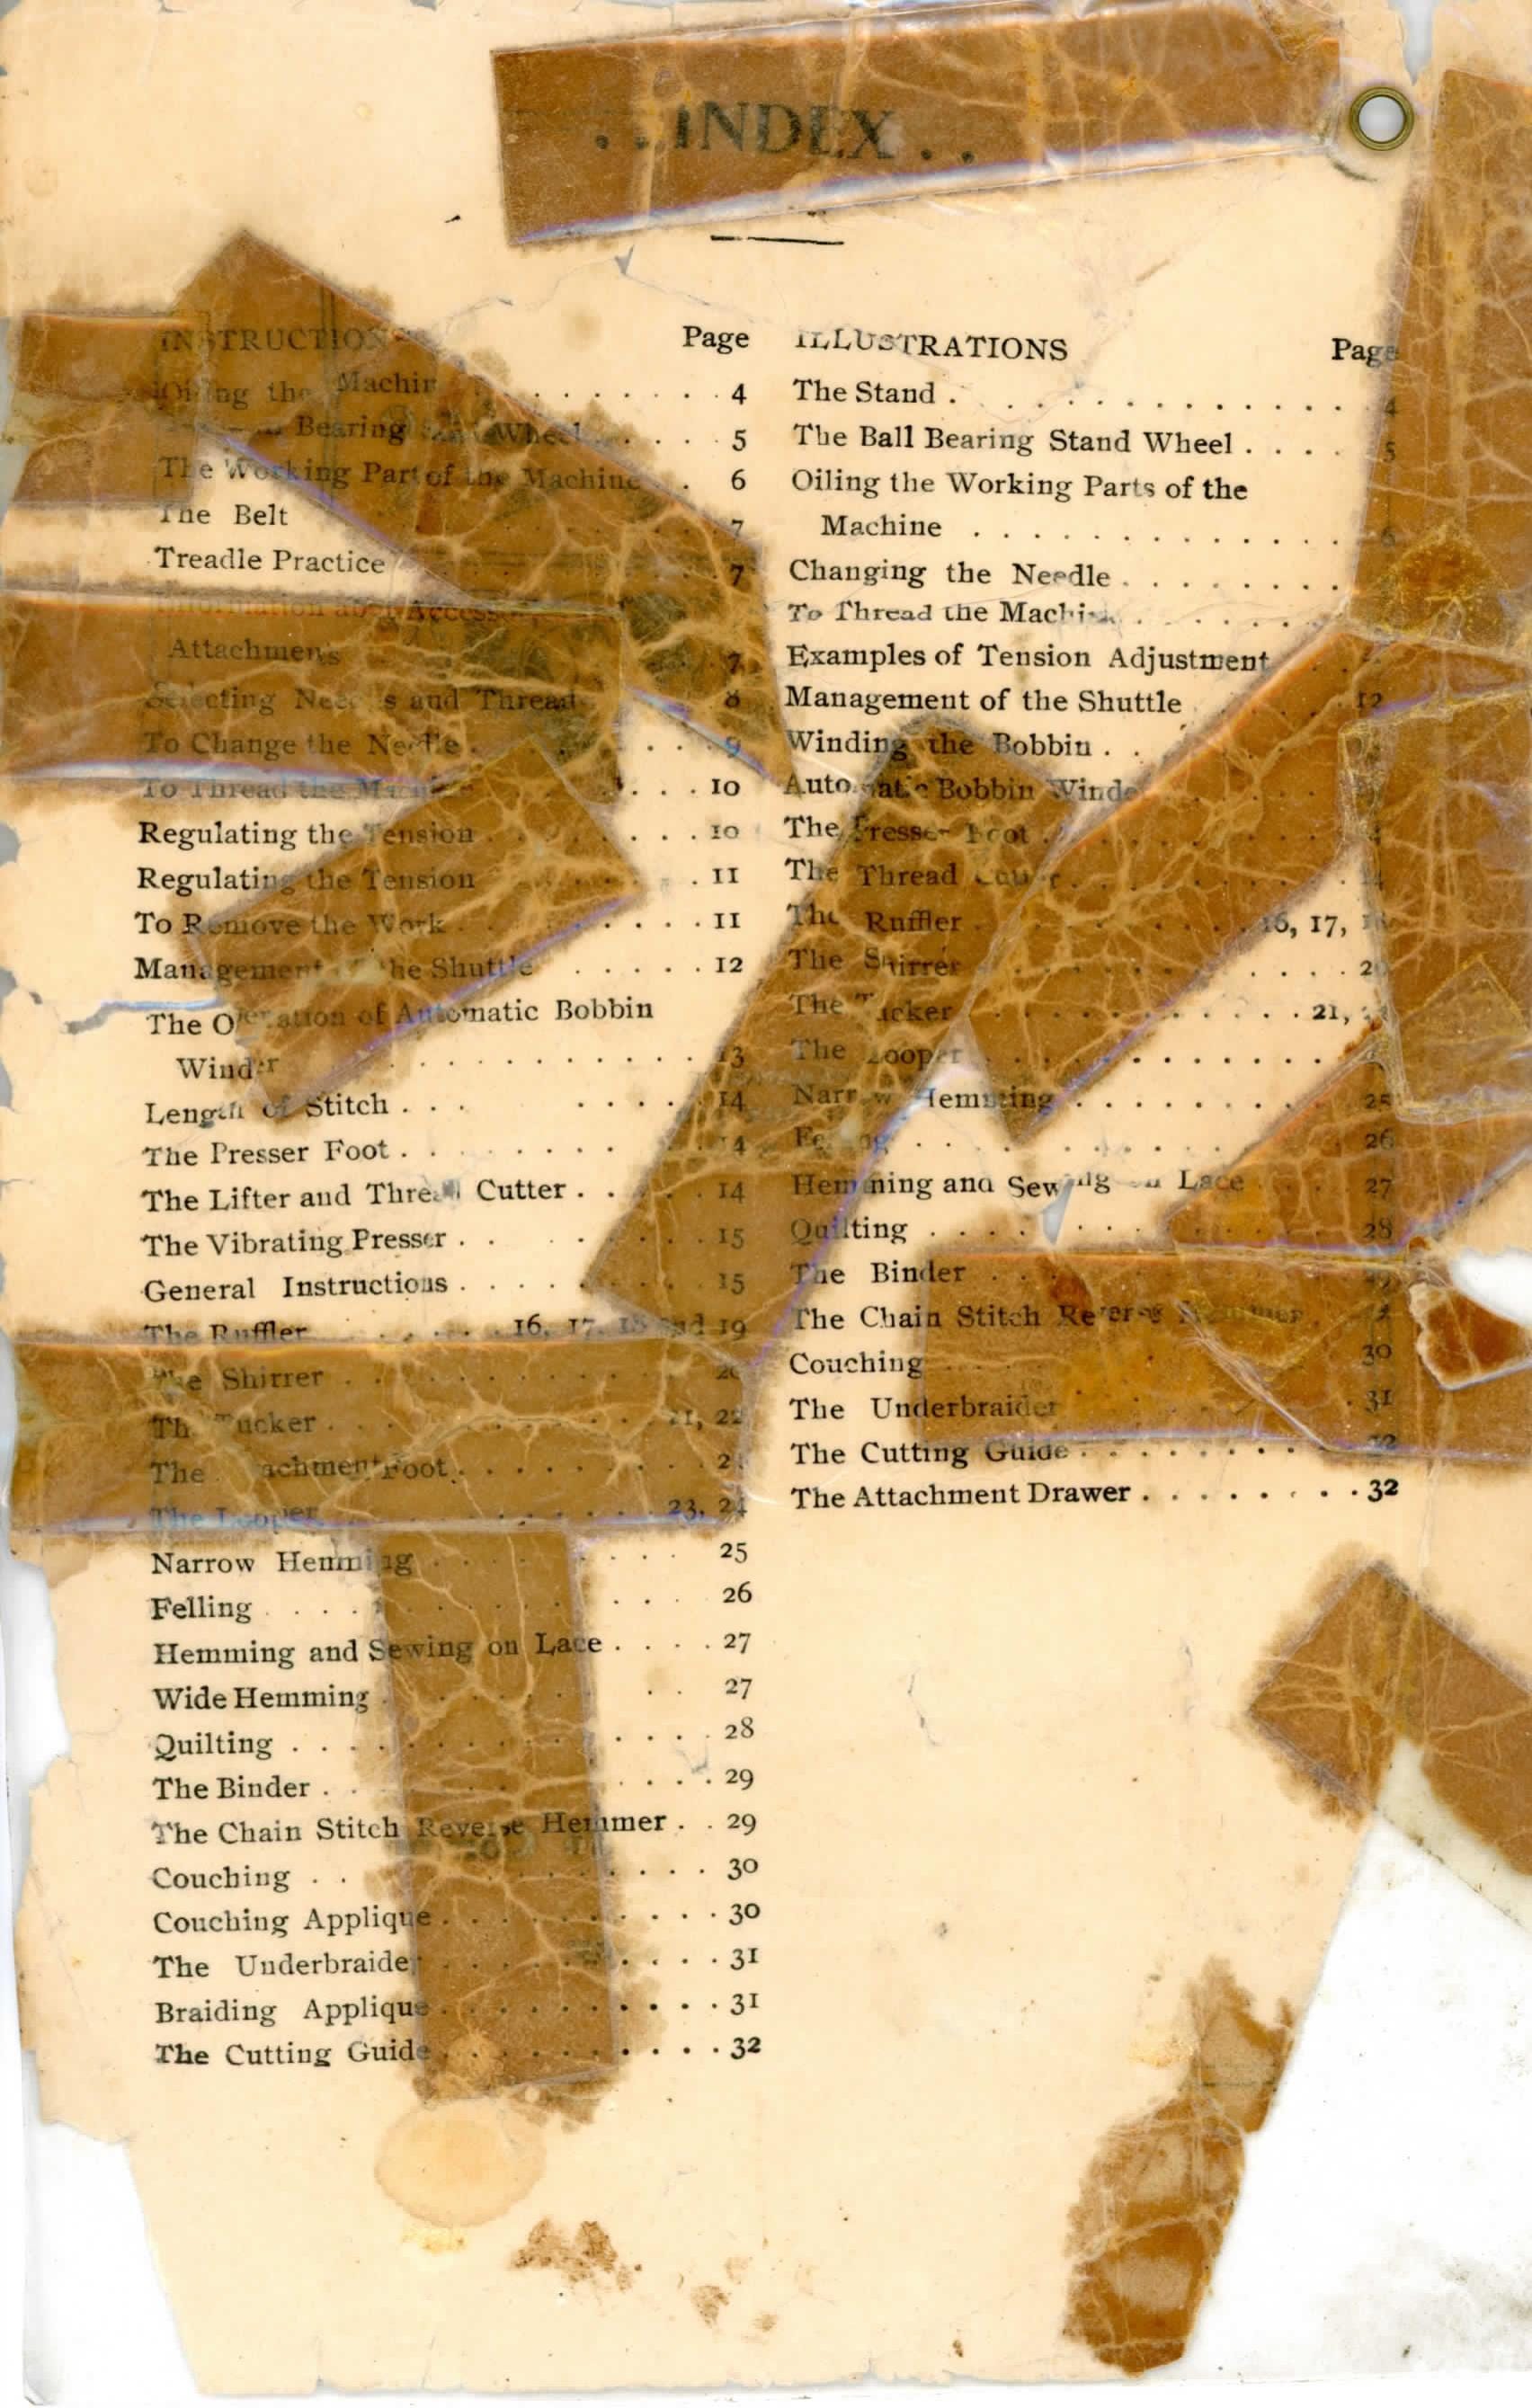 . . INDEX . .
INSTRUCTIONS Page
Oiling the Machin . . . . . . . 4
Bearing Wheel . . . . 5
The Working Part of the Machine . . 6
The Belt 7
Treadle Practice 7
Information Access
Attachments 7
Selecting Needles and Thread 8
To Change the Needle . . . . 9
To Thread the Machine . . . 10
Regulating the Tension . . . . . 10
Regulating the Tension . 11
To Remove the Work . . . . . . 11
Management of the Shuttle . . . . . 12
The Operation of Automatic Bobbin
Winder . . . . . . . . . . . 13
Length of Stitch . . . . . . . 14
The Presser Foot . . . . . . . . 14
The Lifter and Thread Cutter . . . . . 14
The Vibrating Presser . . . . . . 15
General Instructions . . . . . . 15
The Ruffler . . . . 16, 17, 18 and 19
The Shirrer . . . . . . . . . 20
The Tucker . . . . . . . . . 21, 22
The Attachment Foot . . . . . . . . 2
The Looper . . . . . . . 23, 24
Narrow Hemming . . . . . . . 25
Felling . . . . . . . . . . . 26
Hemming and Sewing on Lace . . . . 27
Wide Hemming . . . . . 27
Quilting . . . . . . . . . . . 28
The Binder . . . . . . 29
The Chain Stitch Reverse Hemmer . . 29
Couching . . . . . . . . . 30
Couching Applique . . . . . . . . . . 30
The Underbraider . . . . . . . . . . 31
Braiding Applique . . . . . . . . . . 31
The Cutting Guide . . . . . . . . . . 32
ILLUSTRATIONS Page
The Stand . . . . . . . . . . . . . 4
The Ball Bearing Stand Wheel . . . . 5
Oiling the Working Parts of the
Machine . . . . . . . . . . . . . 6
Changing the Needle . . . . . . . .
To Thread the Machine . . . . . . .
Examples of Tension Adjustment
Management of the Shuttle 12
Winding the Bobbin . .
Automatic Bobbin Winde
The Presser Foot .
The Thread Cutter . . . . . . . . 14
The Ruffler . . . . . . . 16, 17,
The Shirrer . . . . . . . 20
The Tucker . . . . . . . . . . . 21,
The Looper . . . . . . . . . . .
Narrow Hemming . . . . . . . . . 25
Felling . . . . . . . . . . 26
Hemming and Sewing on Lace . . . 27
Quilting . . . . . . . . 28
The Binder . . . .
The Chain Stitch Reverse Hemmer .
Couching . . . . 30
The Underbraider . . . . 31
The Cutting Guide . . . . . . . . . 32
The Attachment Drawer . . . . . . . . 32